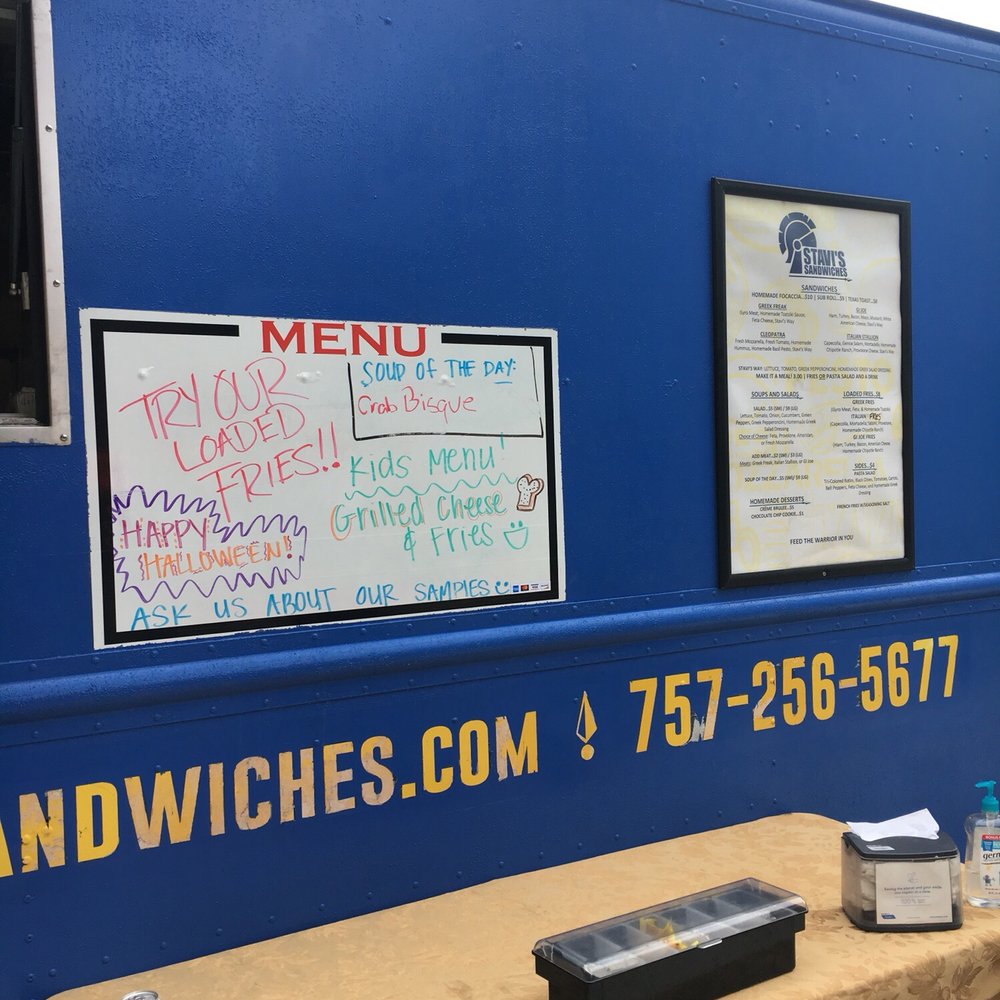 MENU
TRY OUR
LOADED
FRIES!!
SOUP OF THE DAY:
Crab Bisque
Kids Menu!
Grilled Cheese
& Fries
HAPPY
HALLOWEEN!
ASK US ABOUT OUR SAMPLES
STAVI'S
SANDWICHES
SANDWICHES
HOMEMADE FOCACCIA...$10 | SUB ROLL...$9 | TEXAS TOAST...$8
GREEK FREAK
Gyro Meat, Homemade Tzatziki Sauce,
Feta Cheese, Stavi's Way
GI JOE
Ham, Turkey, Bacon, Mayo, Mustard, White
American Cheese, Stavi's Way
CLEOPATRA
Fresh Mozzarella, Fresh Tomato, Homemade
Hummus, Homemade Basil Pesto, Stavi's Way
ITALIAN STALLION
Capicolla, Genoa Salami, Mortadella, Homemade
Chipotle Ranch, Provolone Cheese, Stavi's Way
STAVI'S WAY: LETTUCE, TOMATO, GREEK PEPPERONCINI, HOMEMADE GREEK SALAD DRESSING
MAKE IT A MEAL! 3.00 | FRIES OR PASTA SALAD AND A DRINK
SOUPS AND SALADS
SALAD...$5 (SM) / $8 (LG)
Lettuce, Tomato, Onion, Cucumbers, Green
Peppers, Greek Pepperoncini, Homemade Greek
Salad Dressing
Choice of Cheese: Feta, Provolone, American,
or Fresh Mozzarella
ADD MEAT...$2 (SM) / $3 (LG)
Meats: Greek Freak, Italian Stallion, or GI Joe
SOUP OF THE DAY...$5 (SM)/ $8 (LG)
HOMEMADE DESSERTS
CRÈME BRULEE...$5
CHOCOLATE CHIP COOKIE...$1
LOADED FRIES...$8
GREEK FRIES
(Gyro Meat, Feta, & Homemade Tzatziki)
ITALIAN FRIES
(Capicolla, Mortadella, Salami, Provolone,
Homemade Chipotle Ranch)
GI JOE FRIES
(Ham, Turkey, Bacon, American Cheese
Homemade Chipotle Ranch)
SIDES...$4
PASTA SALAD
Tri-Colored Rotini, Black Olives, Tomatoes, Carrots,
Bell Peppers, Feta Cheese, and Homemade Greek
Dressing
FRENCH FRIES W/SEASONING SALT
FEED THE WARRIOR IN YOU
ANDWICHES.COM 757-256-5677
100%
germ